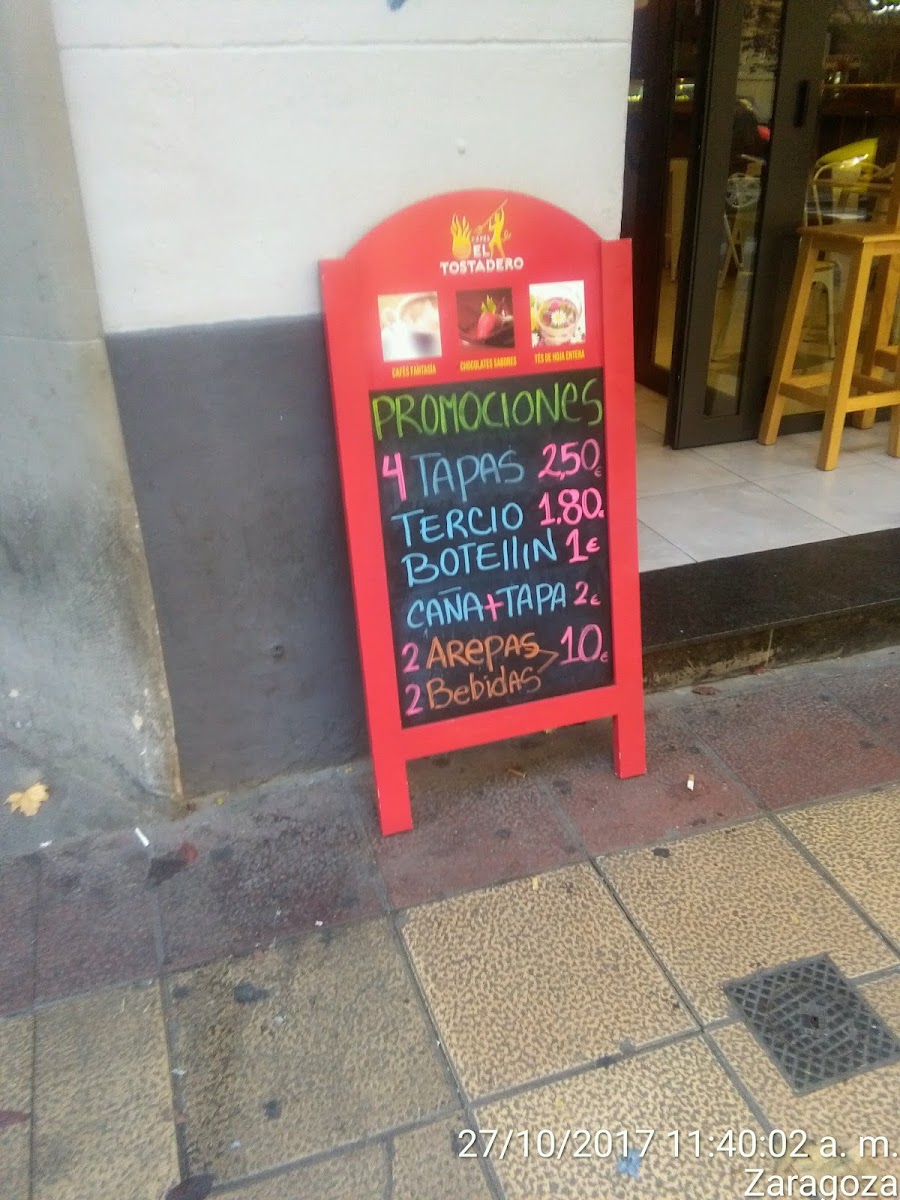 CAFÉS
EL
TOSTADERO
CAFÉS FANTASÍA
CHOCOLATES SABORES
TÉS DE HOJA ENTERA
PROMOCIONES
4 TAPAS 2,50€
TERCIO 1.80.
BOTEllIN 1€
CAÑA+TAPA 2€
2 AREPAS 10€
2 BebidAS
27/10/2017 11:40:02 a. m.
Zaragoza